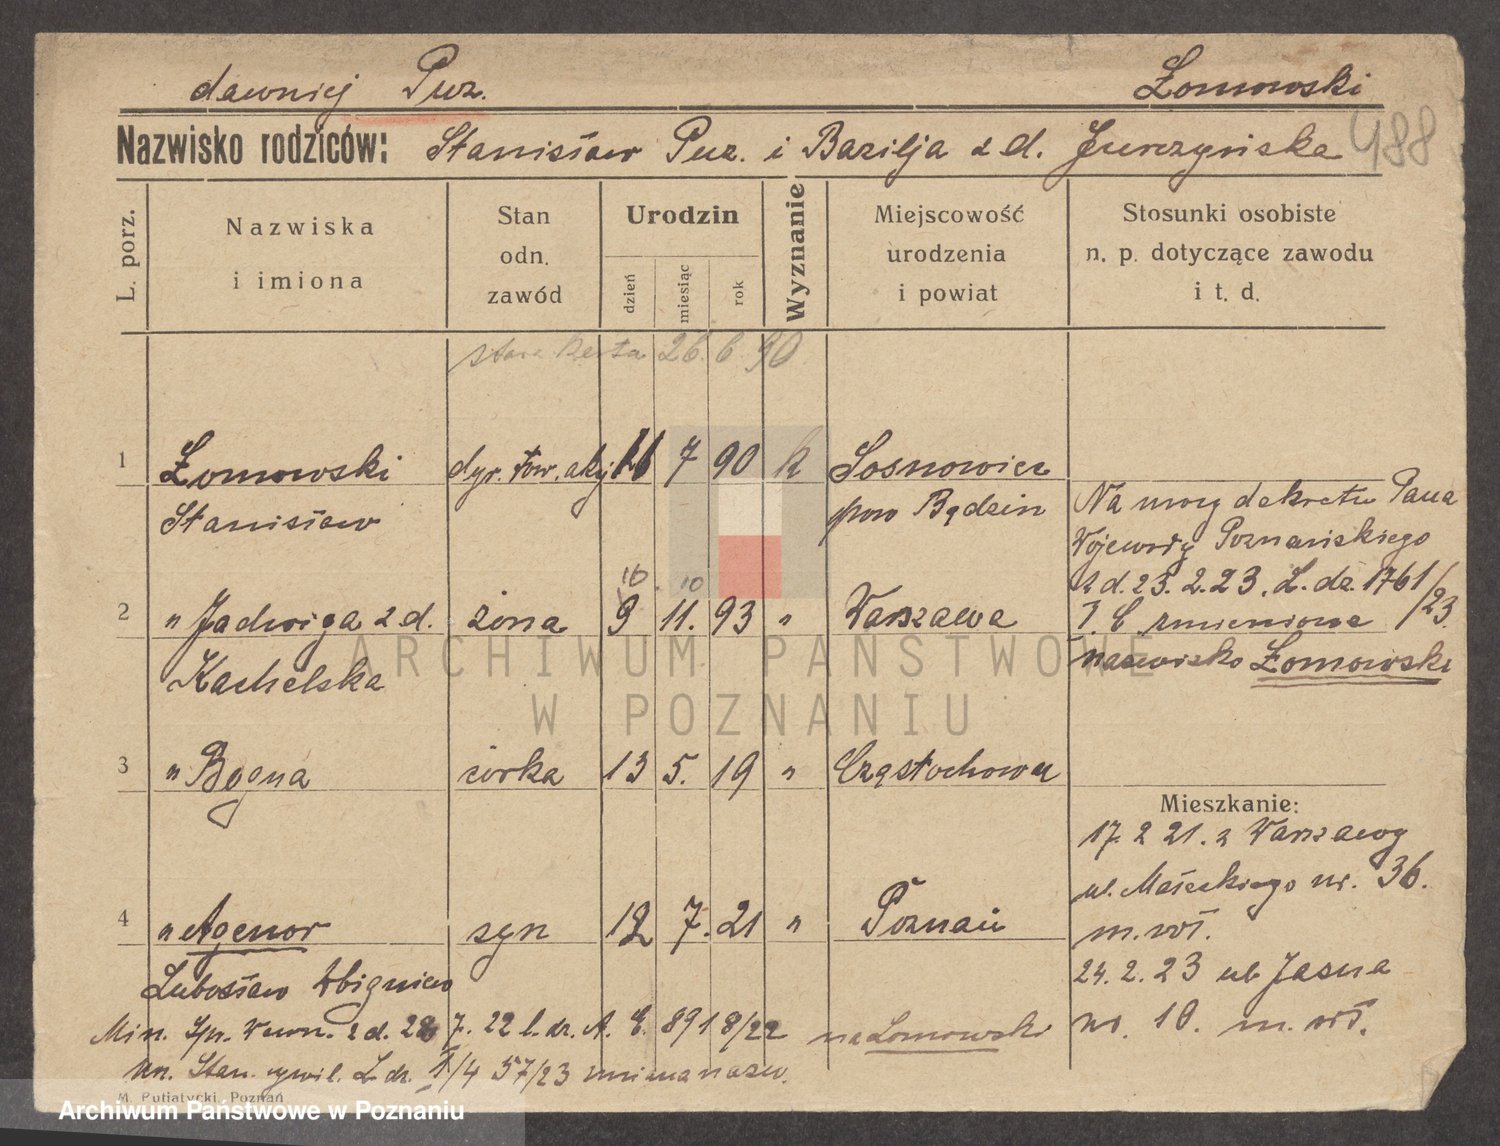 dawniej Puz. Łomowski
Nazwisko rodziców: Stanisław Puz. i Bazilja z d. Jurczyńska 488
L. porz.
Nazwiska
i imiona
Stan
odn.
zawód
Urodzin
dzień
miesiąc
rok
Wyznanie
Miejscowość
urodzenia
i powiat
Stosunki osobiste
n. p. dotyczące zawodu
i t. d.
stara 26. 6. 90
1 Łomowski dyr. Tow. akcj 11 7 90 k Sosnowiec
Stanisław pow Będzin
Na mocy dekretu Pana
Wojewody Poznańskiego
z d. 23. 2. 23. L. dz. 1761/23
zmieniono
nazwisko Łomowski
10. 10
2 " Jadwiga z d. żona 9 11. 93 " Warszawa
Kachelska
3 " Bogna córka 13 5. 19 " Częstochowa
Mieszkanie:
17. 2 21. z Warszawy
ul. Małeckiego nr. 36.
m. wł.
24. 2. 23 ul. Jasna
nr. 10. m. wł.
4 " Agenor syn 12 7. 21 " Poznań
Lubosław Zbigniew
Min. Spr. Wewn. z d. 28 7. 22 l. dz. A. C. 8918/22 na Łomowski
Stan. cywil. L. dz. I/4 57/23 zmiana nazw.
M. Putiatycki, Poznań
ARCHIWUM PAŃSTWOWE
W POZNANIU
Archiwum Państwowe w Poznaniu